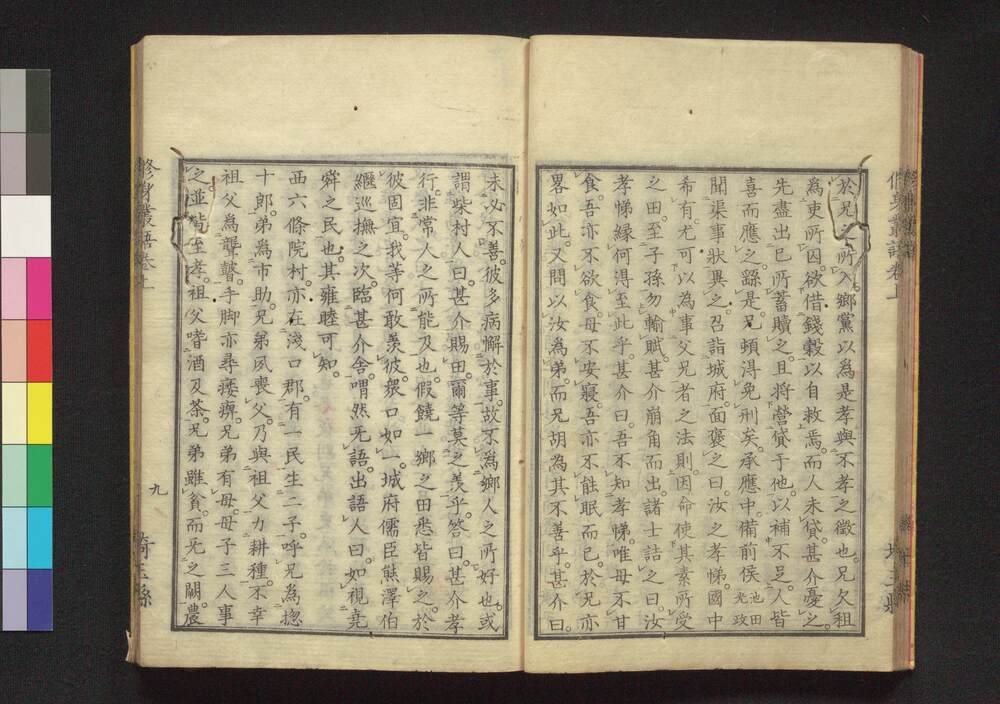 於兄之所入鄉黨以為是孝與不孝之徵也。兄欠租
為吏所囚欲借錢穀以自救焉。而人未貸。甚介憂之。
先盡出已所蓄贖之。且將營貸于他以補不足。人皆
喜而應之。繇是。兄頓得免刑矣。承應中。備前侯池田光政
聞渠事狀異之。召詣城府面褒之曰。汝之孝悌。國中
希有。尤可以為事父兄者之法則。因命使其素所受
之田。至子孫勿輸賦。甚介崩角而出。諸士詰之曰。汝
孝悌緣何得至此乎。甚介曰。吾不知孝悌。唯母不甘
食。吾亦不欲食。母不安寢。吾亦不能眠而已。於兄亦
畧如此。又問以汝為弟。而兄胡為其不善乎。甚介曰。
未必不善。彼多病懈於事。故不為鄉人之所好也。或
謂柴村人曰。甚介賜田。爾等莫之羨乎。答曰。甚介孝
行。非常人之所能及也。假饒一鄉之田悉皆賜之。於
彼固宜。我等何敢羨彼。眾口如一。城府儒臣熊澤伯
繼巡撫之次。臨甚介舍。喟然旡語。出語人曰。如視堯
舜之民也。其雍睦可知。
西六條院村。亦在淺口郡。有一民生二子。呼兄為惣
十郎。弟為市助。兄弟夙喪父。乃與祖父力耕種。不幸
祖父為聾瞽。手脚亦尋痿痺。兄弟有母。母子三人事
之並篤至孝。祖父嗜酒及茶。兄弟雖貧。而旡之闕。農
修身叢語卷上
九
埼玉縣